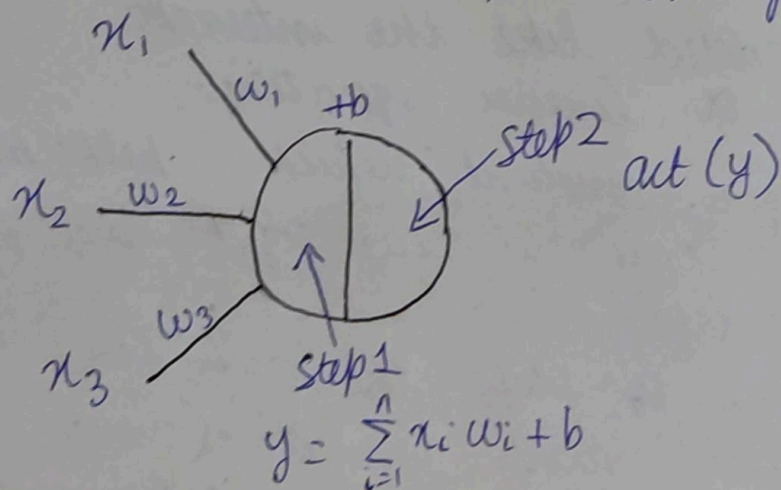 x₁
w₁
+b
step2 act (y)
x₂ w₂
w₃
x₃
step1
y = Σⁿᵢ₌₁ xᵢ wᵢ + b